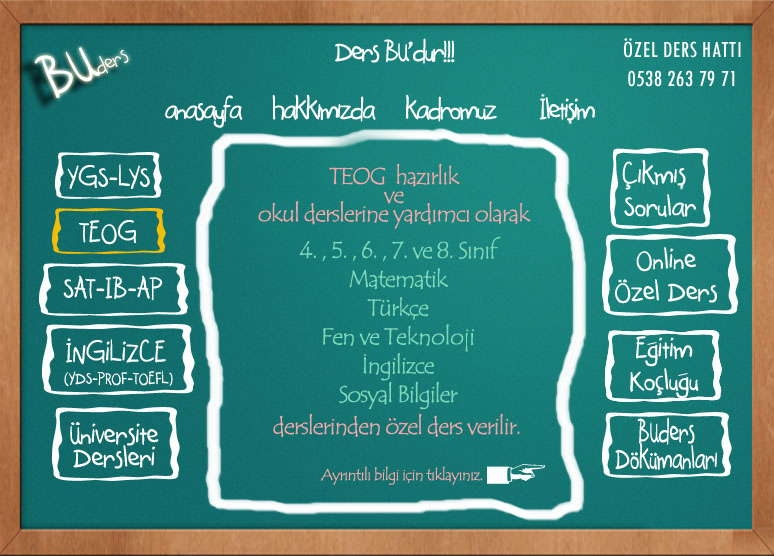 BUders
Ders BU'dur!!!
ÖZEL DERS HATTI
0538 263 79 71
anasayfa hakkımızda Kadromuz İletişim
YGS-LYS
TEOG
SAT-IB-AP
İNGİLİZCE
(YDS-PROF-TOEFL)
Üniversite
Dersleri
TEOG hazırlık
ve
okul derslerine yardımcı olarak
4. , 5. , 6. , 7. ve 8. Sınıf
Matematik
Türkçe
Fen ve Teknoloji
İngilizce
Sosyal Bilgiler
derslerinden özel ders verilir.
Ayrıntılı bilgi için tıklayınız.
Çıkmış
Sorular
Online
Özel Ders
Eğitim
Koçluğu
Buders
DÖKÜmANları